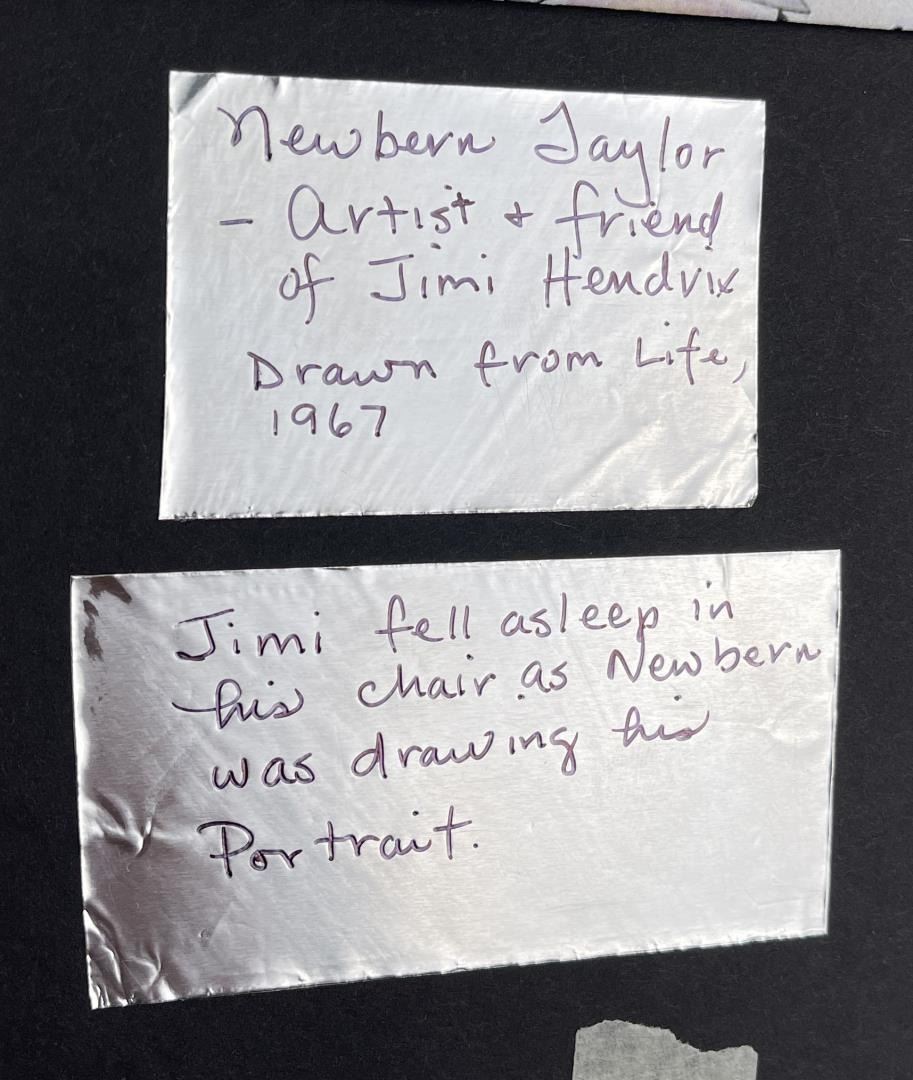 Newbern Taylor
- Artist + friend
of Jimi Hendrix
Drawn from Life,
1967
Jimi fell asleep in
his chair as Newbern
was drawing his
Portrait.